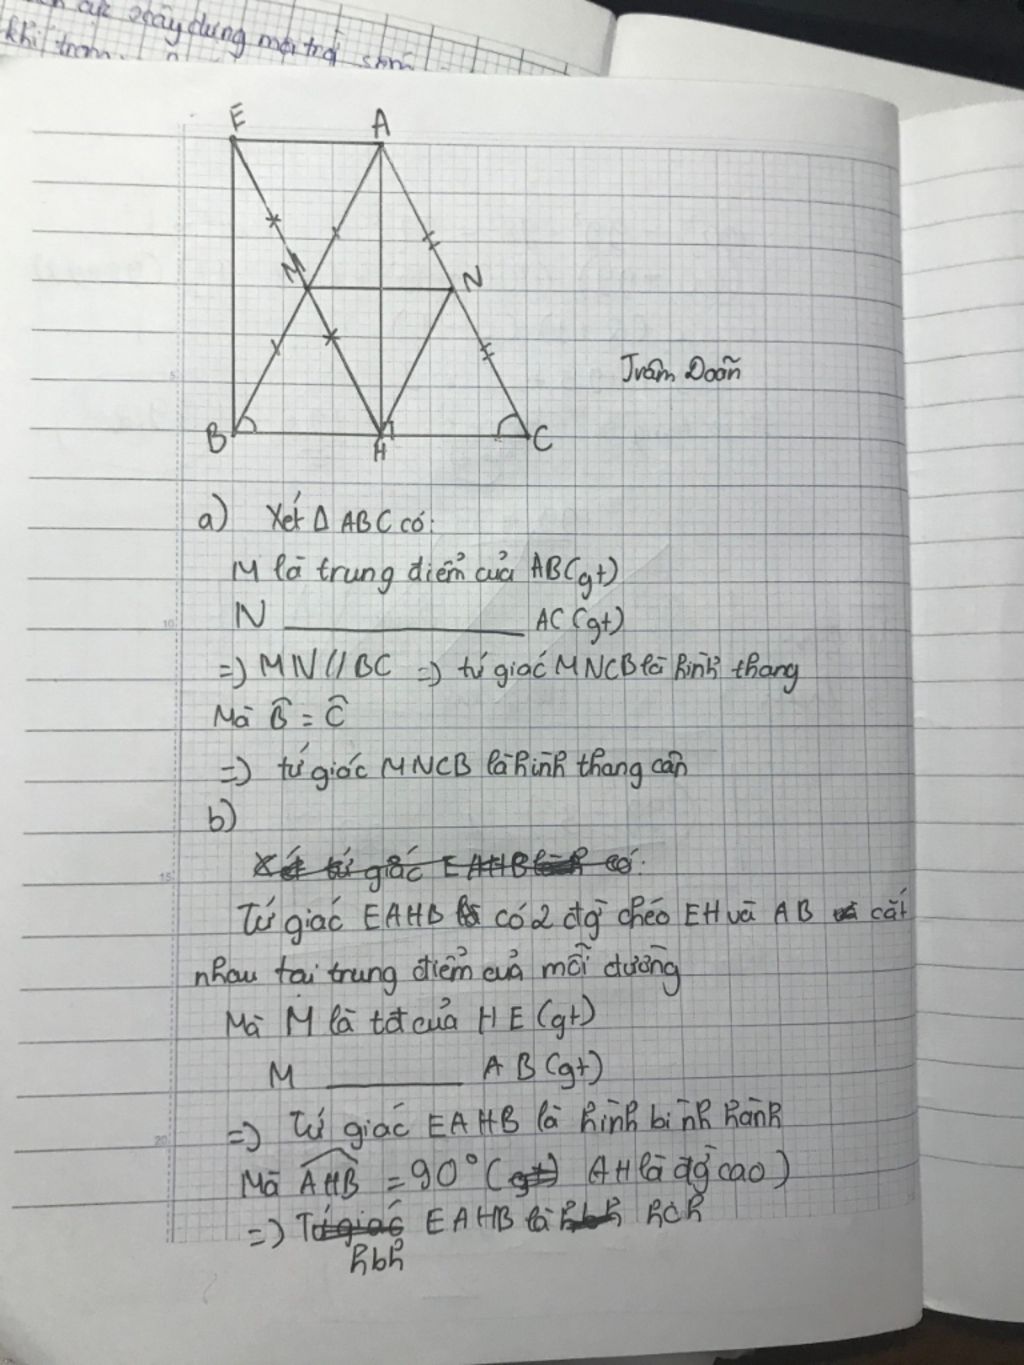 xây dựng môi trờ
khi trom
E A
M N
Trâm Doãn
B H C
a) Xét Δ ABC có:
M là trung điểm của AB (gt)
N ________ AC (gt)
=) MN // BC =) tứ giác MNCB là hình thang
Mà B̂ = Ĉ
=) tứ giác MNCB là hình thang cân
b)
Xét tứ giác EAHB có:
Tứ giác EAHB có 2 đg chéo EH và AB cắt
nhau tại trung điểm của mỗi đường
Mà M là tđ của HE (gt)
M ________ AB (gt)
=) Tứ giác EAHB là hình bình hành
Mà AHB = 90° (gt) AH là đg cao)
=) Tứ giác EAHB là hbh hcn
hbh